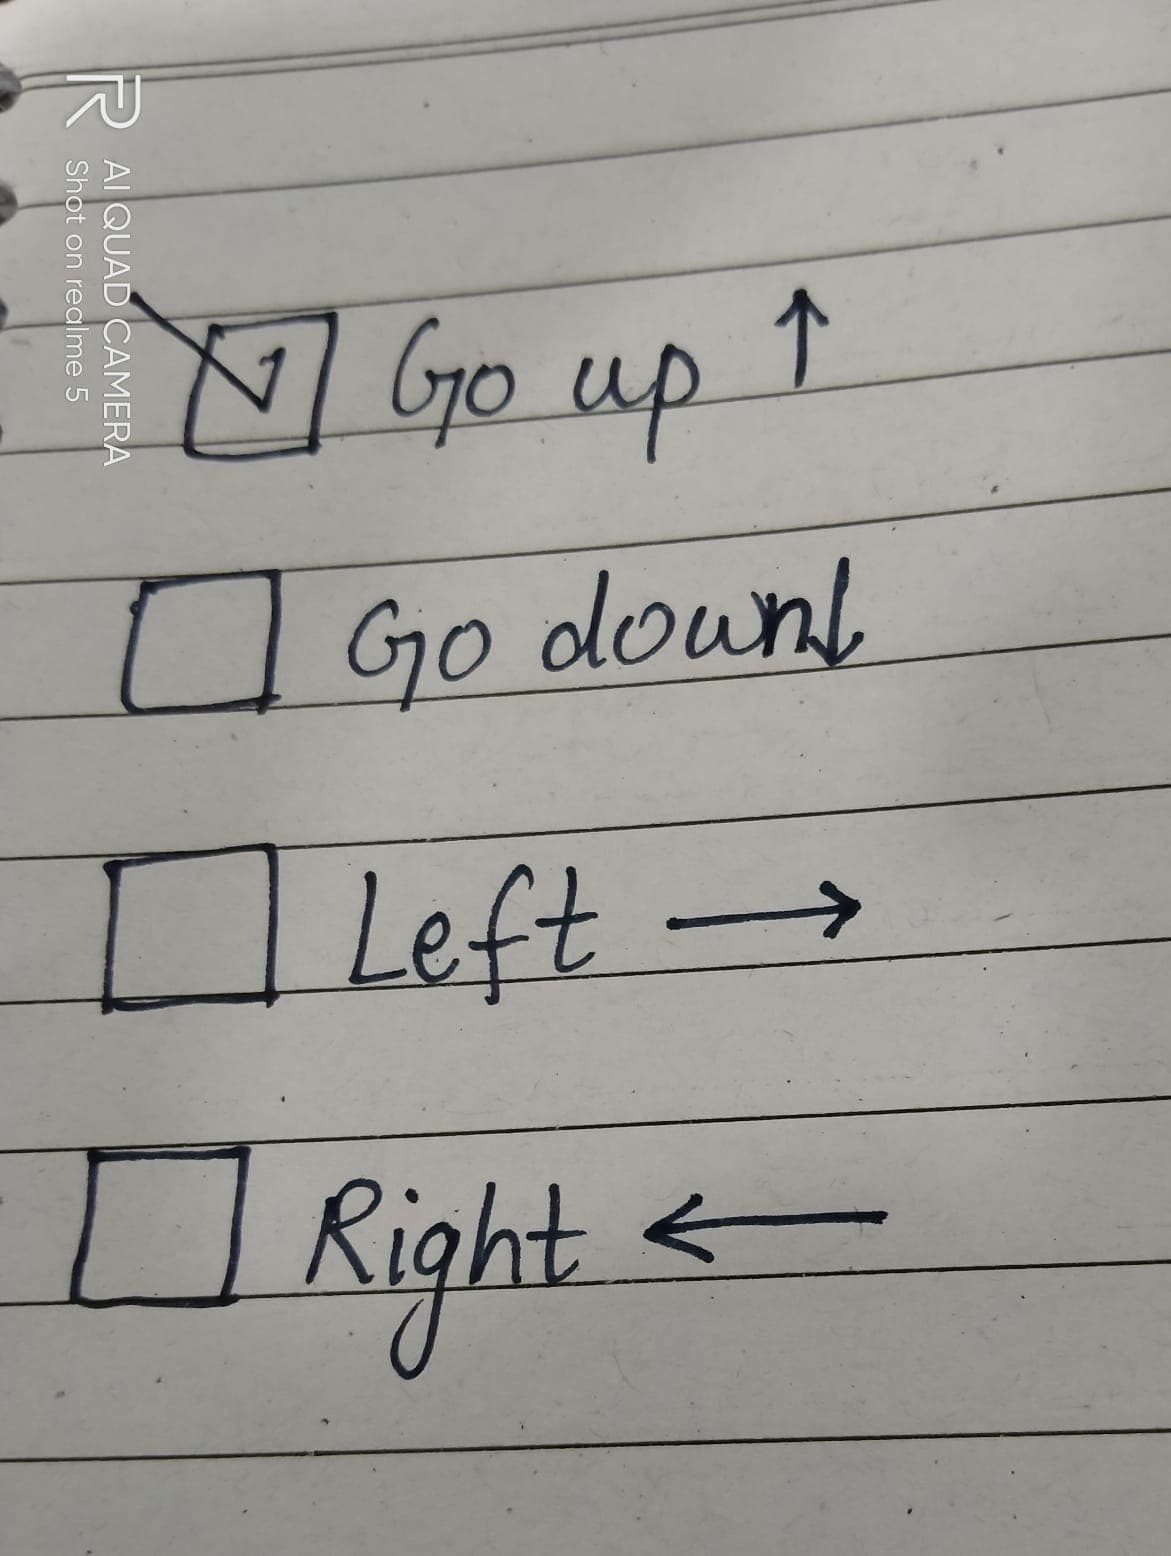 AI QUAD CAMERA
Shot on realme 5
☑ Go up ↑
☐ Go down ↓
☐ Left →
☐ Right ←